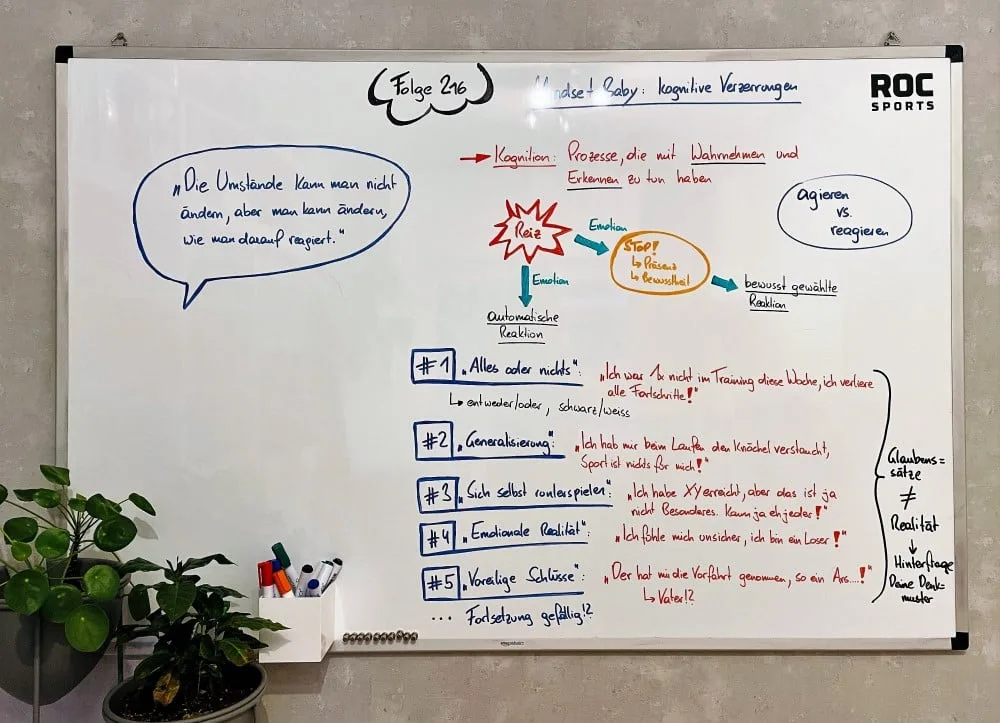 Folge 216
Mindset Baby: kognitive Verzerrungen
ROC
SPORTS
„Die Umstände kann man nicht
ändern, aber man kann ändern,
wie man darauf reagiert."
→ Kognition: Prozesse, die mit Wahrnehmen und
Erkennen zu tun haben
agieren
vs.
reagieren
Reiz
Emotion
STOP!
↳ Präsenz
↳ Bewusstheit
bewusst gewählte
Reaktion
Emotion
automatische
Reaktion
#1 „Alles oder nichts":
„Ich war 1x nicht im Training diese Woche, ich verliere
alle Fortschritte!"
↳ entweder/oder, schwarz/weiss
#2 „Generalisierung":
„Ich hab mir beim Laufen den Knöchel verstaucht,
Sport ist nichts für mich!"
#3 „Sich selbst runterspielen":
„Ich habe XY erreicht, aber das ist ja
nicht Besonderes. Kann ja eh jeder!"
#4 „Emotionale Realität":
„Ich fühle mich unsicher, ich bin ein Loser!"
#5 „Voreilige Schlüsse":
„Der hat mir die Vorfahrt genommen, so ein Ars....!"
↳ Vater!?
... Fortsetzung gefällig!?
Glaubens=
sätze
≠
Realität
↓
Hinterfrage
Deine Denk-
muster